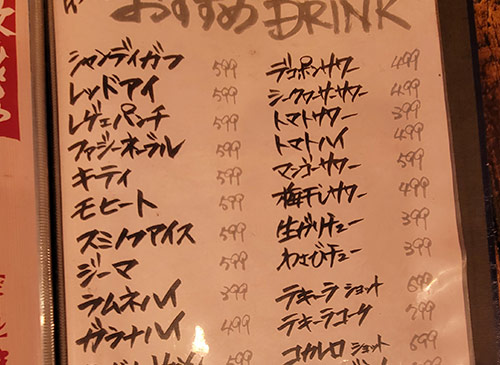 おすすめ DRINK
シャンディガフ 599
レッドアイ 599
レゲェパンチ 599
ファジーネーブル 599
キーティ 599
モヒート 599
スミノフアイス 599
ジーマ 599
ラムネハイ 399
ガラナハイ 499
599
デコポンサワー 499
シークヮーサーサワー 499
トマトサワー 399
トマトハイ 499
マンゴーサワー 599
梅干しサワー 499
生ガリチュー 399
わさびチュー 399
テキーラ ショット 699
テキーラコーク 799
コカレロ ショット 699